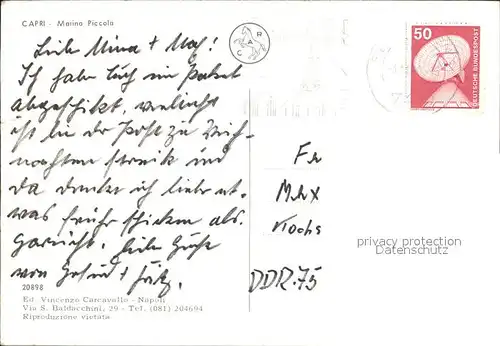 CAPRI - Marina Piccola
C A R
50
DEUTSCHE BUNDESPOST
Liebe Mina + Max!
Ich habe Euch ein Paket
abgeschickt, vieleicht
ist in der Post zu Weih-
nachten streik und
da denke ich lieber et-
was früher schicken als
garnicht. Liebe Grüße
von Gosund + Fritz.
Fr
Max
Kochs
DDR-75
privacy protection
Datenschutz
20898
Ed. Vincenzo Carcavallo - Napoli
Via S. Baldacchini, 29 - Tel. (081) 204694
Riproduzione vietata